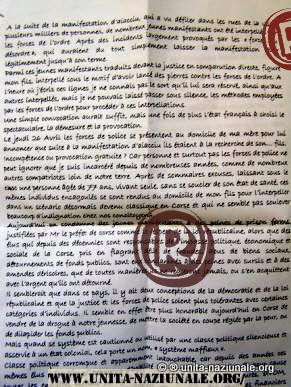 A la suite de la manifestation d'aiacciu qui a vu défiler dans les rues de la
plusieurs milliers de personnes, de nombreux jeunes manifestants ont été interpellés
les forces de l'ordre. Après des incidents largement provoqués par les « forces
désordre », qui auraient du tout simplement laisser la manifestation
légitimement jusqu'à son terme.
Parmi ces jeunes manifestants traduits devant la justice en comparution directe, figure
mon fils, interpellé sous le motif d'avoir lancé des pierres contre les forces de l'ordre. A
l'heure où j'écris ces lignes je ne connais pas le sort qu'il lui sera réservé, ainsi qu'aux
autres interpellés, mais je ne pouvais laisser passer sous silence, les méthodes employées
par les forces de l'ordre pour procéder à ces interpellations.
Une simple convocation aurait suffit, mais une fois de plus l'état français à choisi le
spectaculaire, la démesure et la provocation.
Le jeudi 20 Avril les forces de police se présentent au domicile de ma mère pour lui
annoncer que suite à la manifestation d'aiacciu ils étaient à la recherche de son fils
incompétence ou provocation gratuite ? Car personne et surtout pas les forces de police ne
peut ignorer que je suis incarcéré depuis de nombreuses années, comme de nombreux
autres compatriotes loin de notre terre. Après de sommaires excuses, laissant sous le
choc une personne âgée de 77 ans, vivant seule, sans se soucier de son état de santé, ces
mêmes individus encagoulés se sont rendus au domicile de mon fils pour l'interpeller
dans un scénario désormais devenu classique en Corse et qui ne semble pas soulever
beaucoup d'indignation chez nos
Aujourd'hui on condamne des jeunes à de prison ferme
justifiées par Mr le préfet de corse comme républicaine, alors que des
élus qui depuis des décennies sont économique et
sociale de la Corse, pris en flagrant de biens sociaux,
détournements de fonds publics, sont avec sursis et à des
amendes dérisoires, que de toutes manières jamais, ou s'en acquittent
avec l'argent qu'ils ont détourné.
Il semblerait que dans ce pays, il y ait deux conceptions de la démocratie et de la loi
républicaine et que la justice et les forces de police soient plus tolérantes avec certaines
catégories d'individus. Il semble en effet être plus honorable aujourd'hui en Corse de
vendre de la drogue à notre jeunesse, de mettre la société en coupe réglée par la peur, ou
de dilapider les fonds publics.
Mais quand ce système est cautionné par une classe politique silencieuse et
asservie à un état colonial, cela porte un nom, « système maffieux ».
classe politique corrompue et apparemment intouchable, car depuis des années
R
R
® unita-naziunale.org
WWW.UNITA-NAZIUNALE.ORG